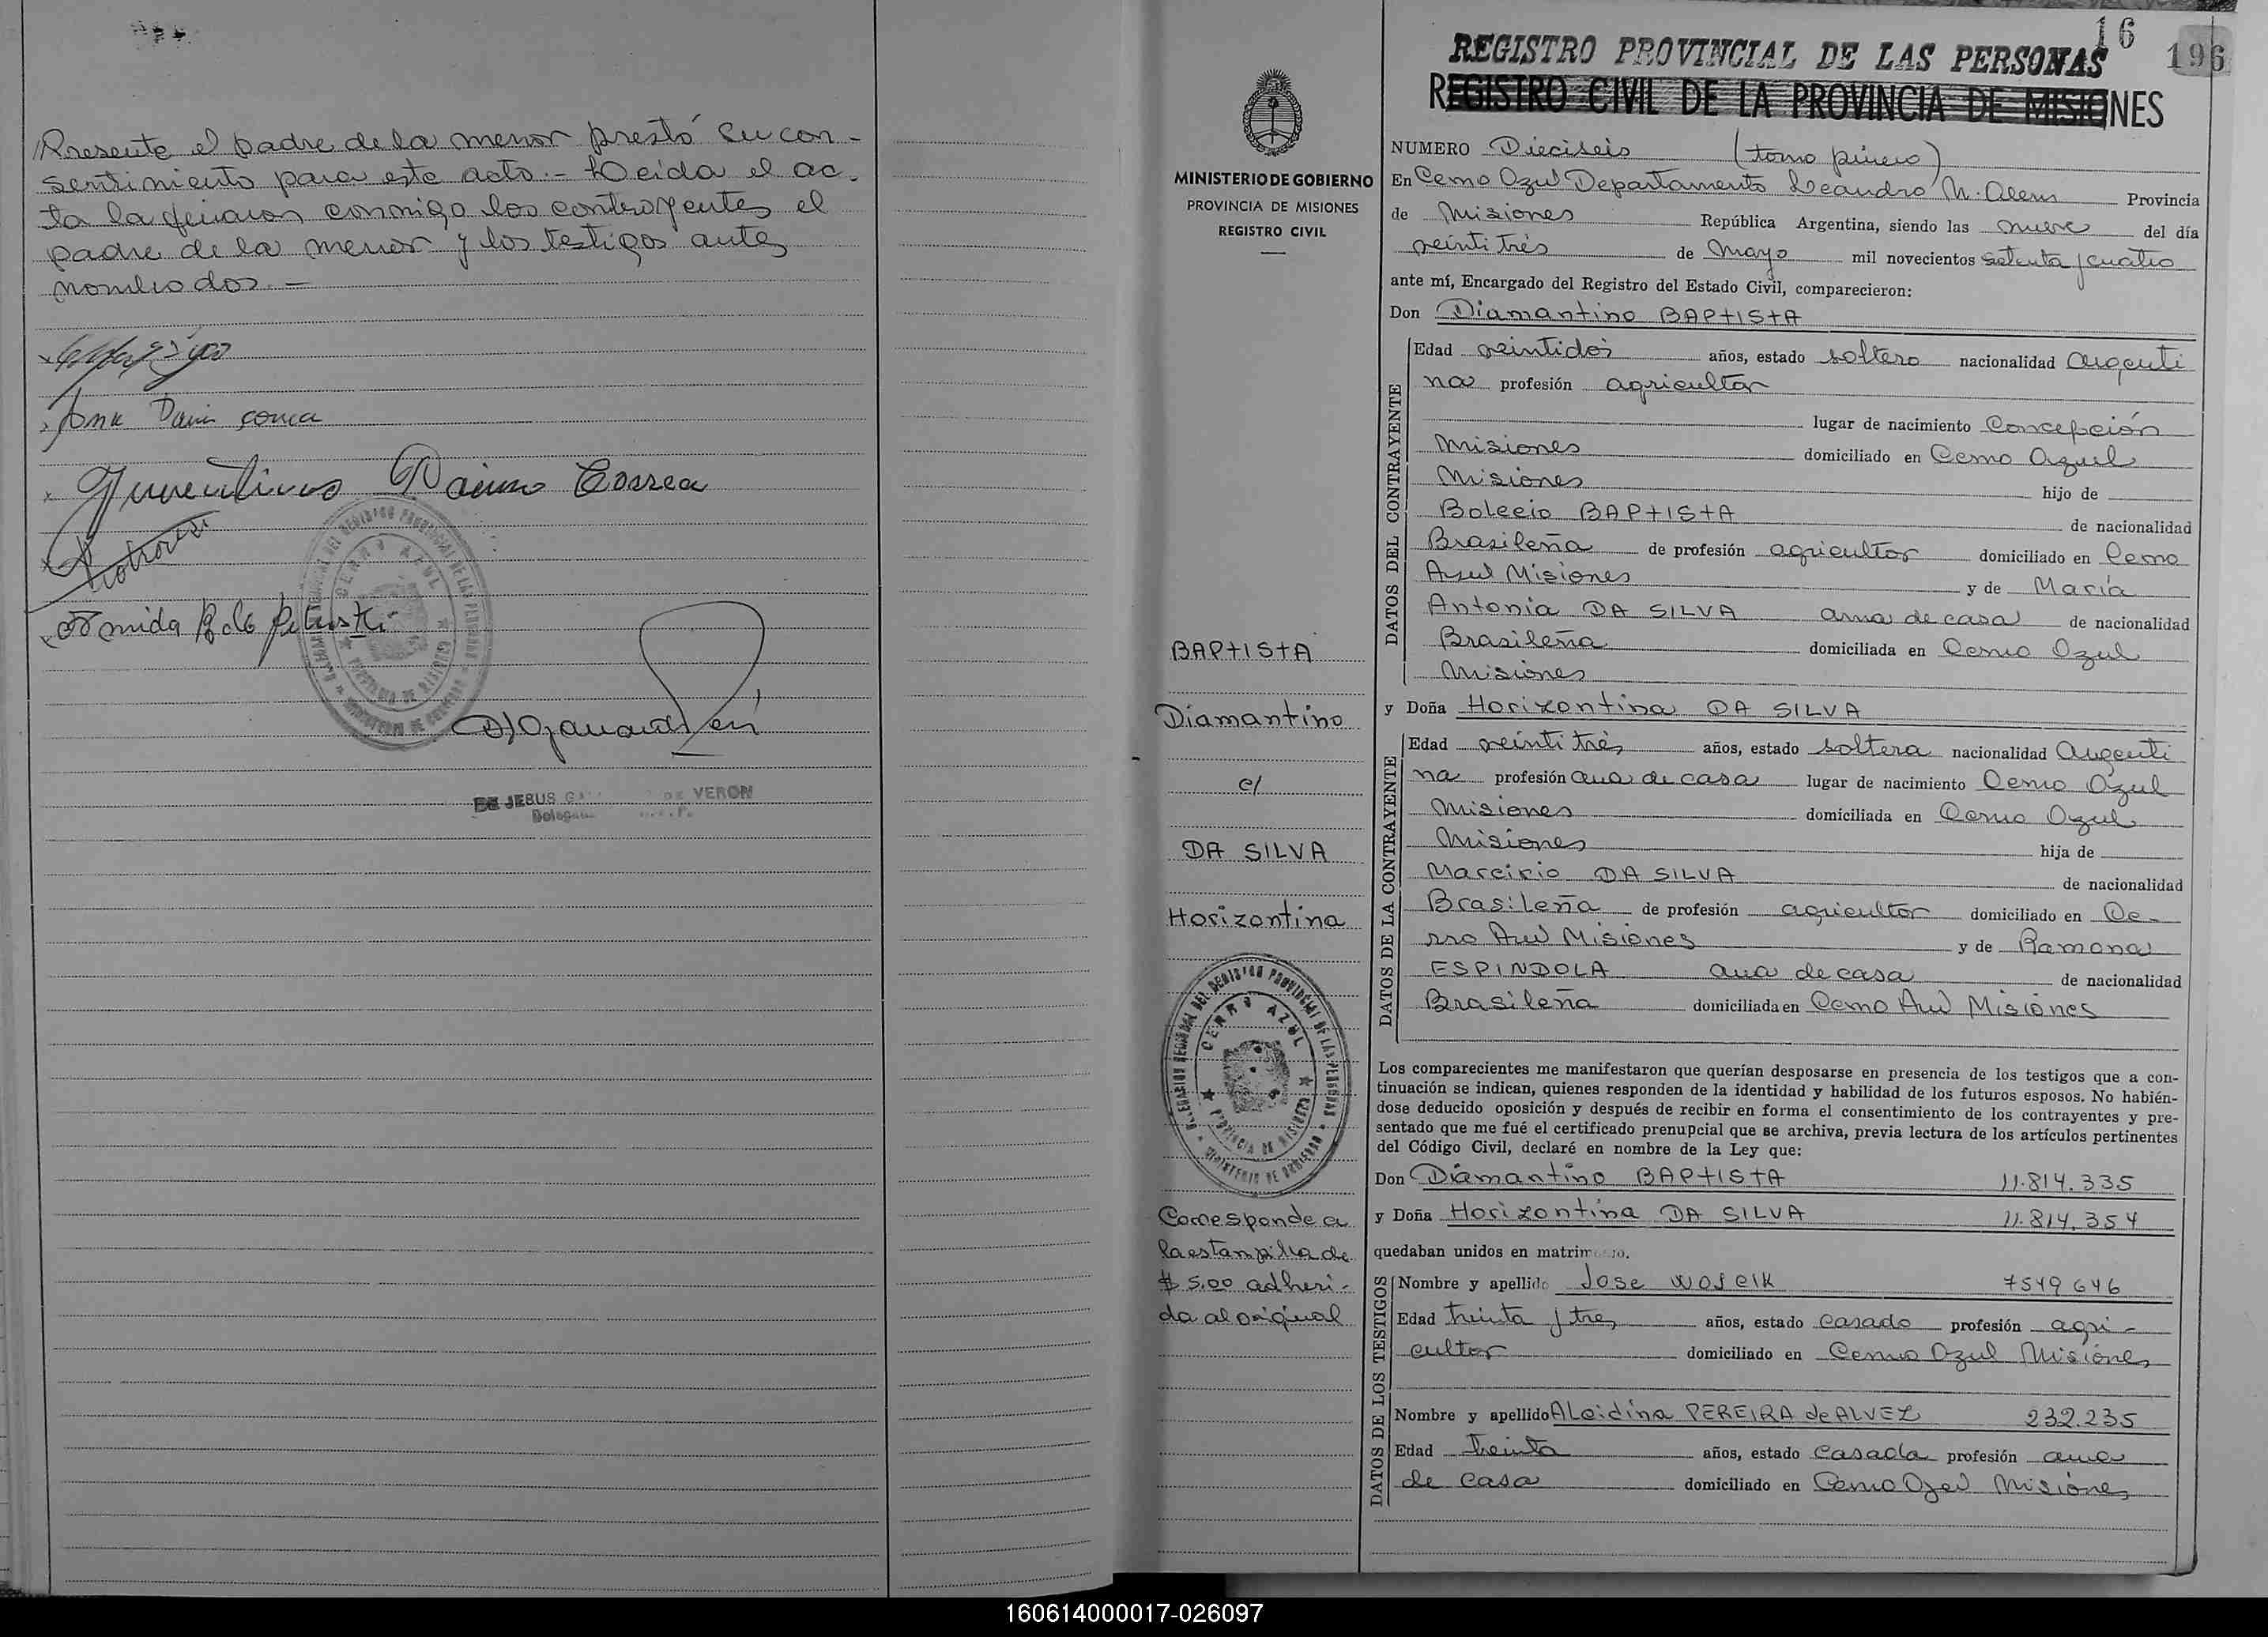 Presente el padre de la menor prestó su con-
sentimiento para este acto.- Leida el ac-
ta la firmaron conmigo los contrayentes el
padre de la menor y los testigos antes
nombrados.-
Correa
Correa
DE JESUS VERON
16
196
REGISTRO PROVINCIAL DE LAS PERSONAS
REGISTRO CIVIL DE LA PROVINCIA DE MISIONES
MINISTERIO DE GOBIERNO
PROVINCIA DE MISIONES
REGISTRO CIVIL
BAPTISTA
Diamantino
c/
DA SILVA
Horizontina
CERRO AZUL
PROVINCIA DE MISIONES
MINISTERIO DE GOBIERNO
Corresponde a
la estampilla de
$ 5.00 adheri-
da al original
NUMERO Dieciseis (tomo primero)
En Cerro Azul Departamento Leandro N. Alem Provincia
de Misiones República Argentina, siendo las nueve del día
veintitrés de Mayo mil novecientos setenta y cuatro
ante mí, Encargado del Registro del Estado Civil, comparecieron:
Don Diamantino BAPTISTA
DATOS DEL CONTRAYENTE
Edad veintidos años, estado soltero nacionalidad Argenti
na profesión agricultor
lugar de nacimiento Concepción
Misiones domiciliado en Cerro Azul
Misiones hijo de
BAPTISTA de nacionalidad
Brasileña de profesión agricultor domiciliado en Cerro
Azul Misiones y de María
Antonia DA SILVA ama de casa de nacionalidad
Brasileña domiciliada en Cerro Azul
Misiones
y Doña Horizontina DA SILVA
DATOS DE LA CONTRAYENTE
Edad veintitrés años, estado soltera nacionalidad Argenti
na profesión ama de casa lugar de nacimiento Cerro Azul
Misiones domiciliada en Cerro Azul
Misiones hija de
Marcirio DA SILVA de nacionalidad
Brasileña de profesión agricultor domiciliado en Ce-
rro Azul Misiones y de Ramona
ESPINDOLA ama de casa de nacionalidad
Brasileña domiciliada en Cerro Azul Misiones
Los comparecientes me manifestaron que querían desposarse en presencia de los testigos que a con-
tinuación se indican, quienes responden de la identidad y habilidad de los futuros esposos. No habién-
dose deducido oposición y después de recibir en forma el consentimiento de los contrayentes y pre-
sentado que me fué el certificado prenupcial que se archiva, previa lectura de los artículos pertinentes
del Código Civil, declaré en nombre de la Ley que:
Don Diamantino BAPTISTA 11.814.335
y Doña Horizontina DA SILVA 11.814.354
quedaban unidos en matrimonio.
DATOS DE LOS TESTIGOS
Nombre y apellido Jose WOSEIK 7549646
Edad treinta y tres años, estado casado profesión agri-
cultor domiciliado en Cerro Azul Misiones
Nombre y apellido Alcidina PEREIRA de ALVEZ 232.235
Edad treinta años, estado casada profesión ama
de casa domiciliado en Cerro Azul Misiones
160614000017-026097